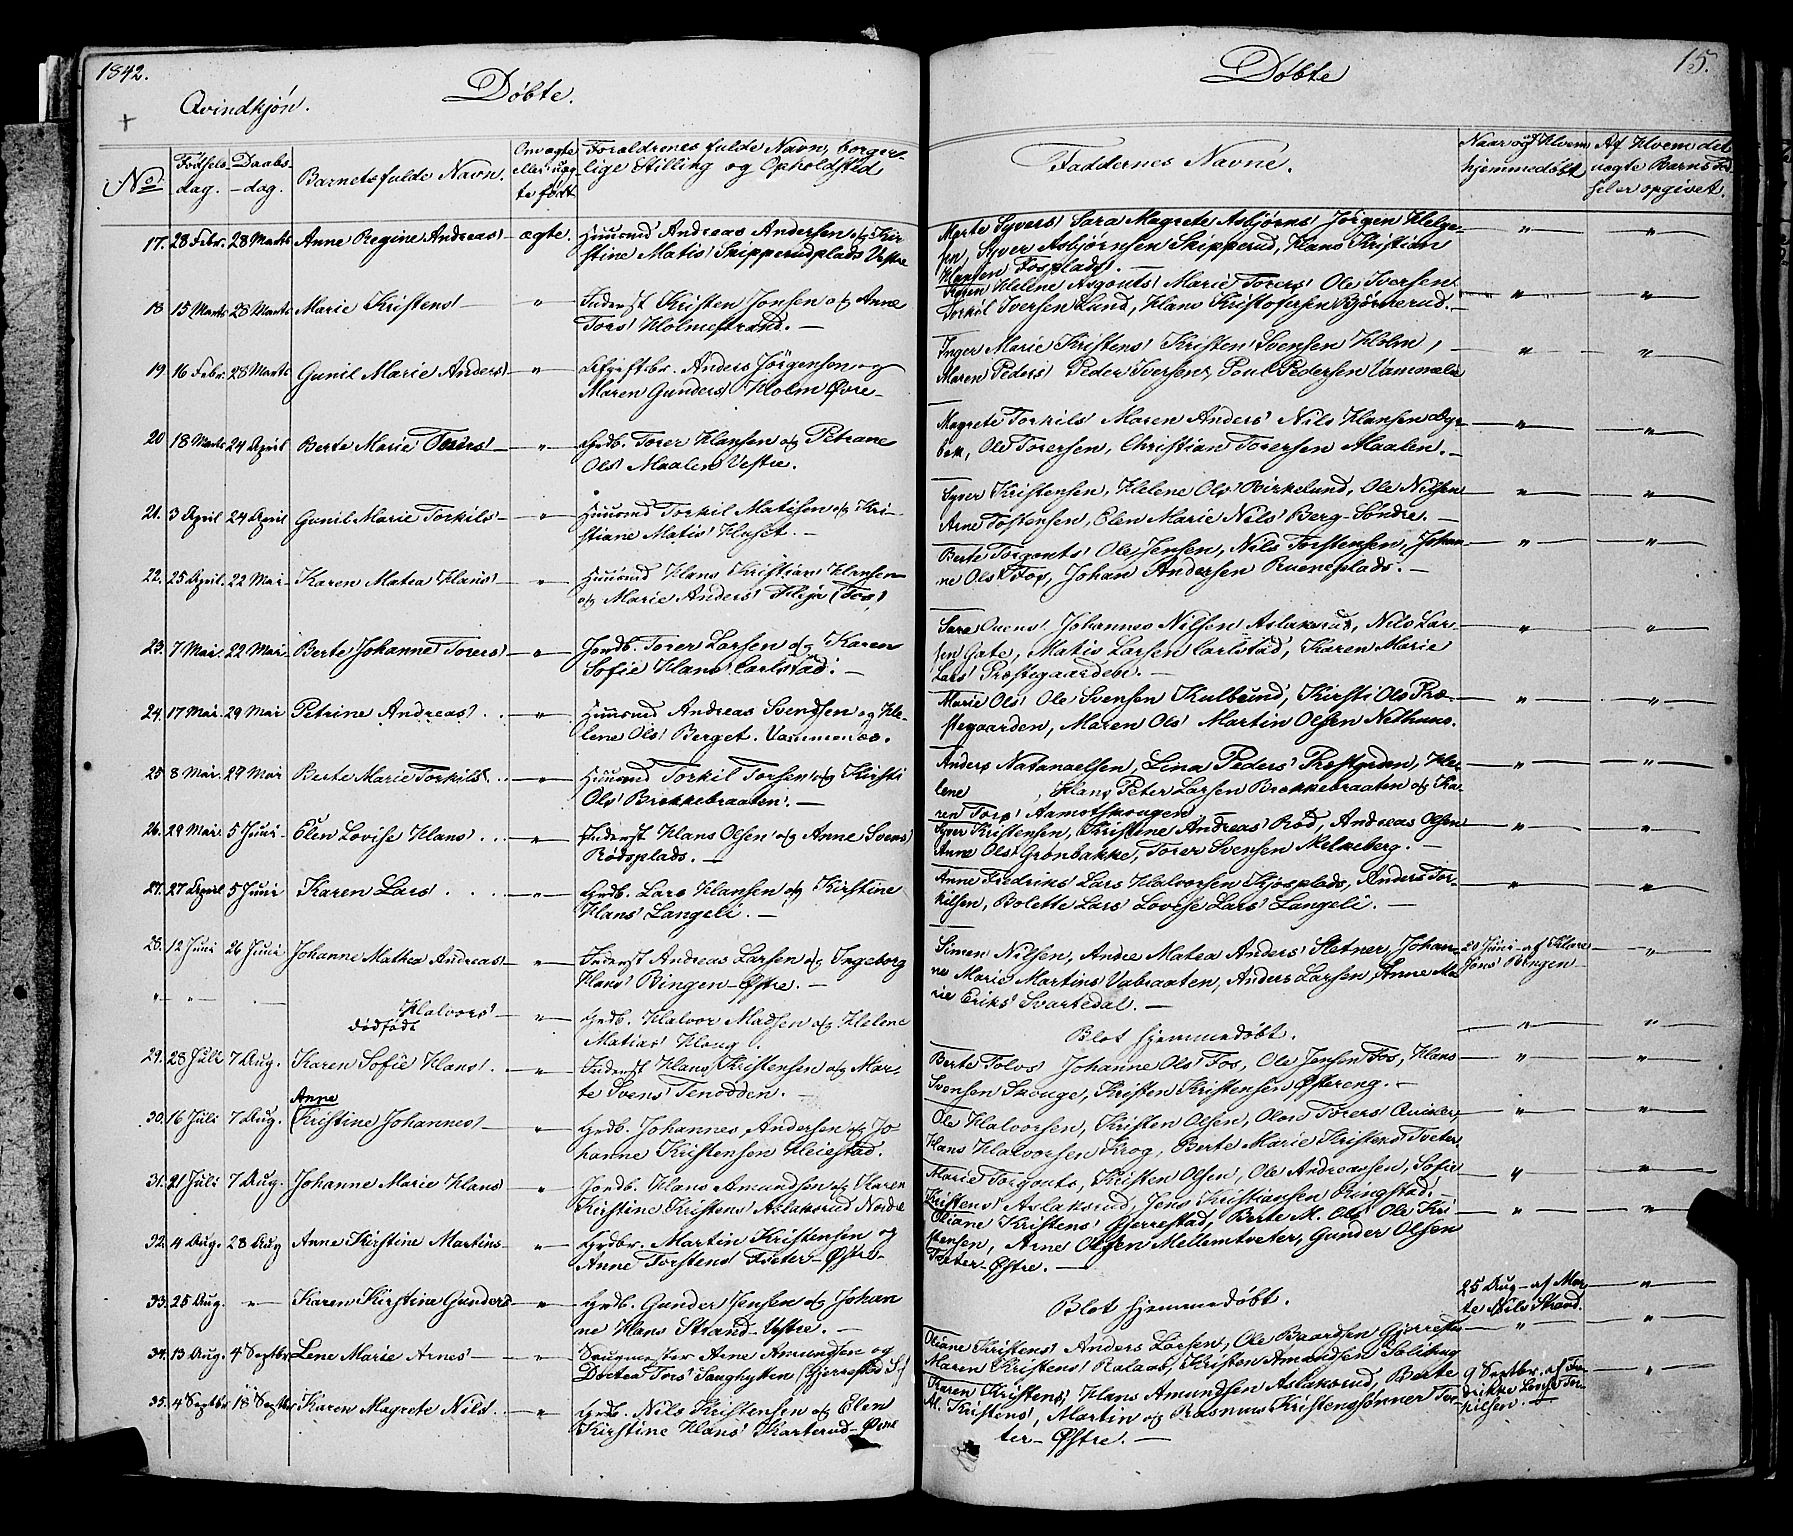 1842.
Døbte.
Qvindkjøn.
No
Fødsels dag.
Daabs dag.
Barnets fulde Navn.
Om ægte eller uægte født
Forældrenes fulde Navn, borgerlige Stilling og Opholdsted
17. 28 Febr. 28 Marts Anne Regine Andreas' ægte. Huusmd Andreas Andersen og Kirstine Matis' Skipperudplads Vestre
18 15 Marts 28 Marts Marie Kristens' " Inderst Kristen Jonsen og Anne
Tors' Holmestrand. —
19 16 Febr. 28 Marts Gunil Marie Anders' " Anders Jørgensen og
Maren Gunders' Holm Øvre
20 18 Marts 24 April Berte Marie Torers " Grdb. Torer Hansen og Petrane
Ols' Maalen Vestre.
21. 3 April 24 April Gunil Marie Torkils " Huusmd Torkil Matisen og Kri-
stiane Matis' Huset. —
22. 25 April 22 Mai Karen Matea Hans' " Huusmd Hans Kristian Hansen
og Marie Anders' (Fos)
23. 7 Mai 22 Mai Berte Johanne Torers' " Jordb. Torer Larsen og Karen
Sofie Hans' Carlstad. —
24. 17 Mai. 29 Mai Petrine Andreas' " Huusmd Andreas Svendsen og He-
lene Ols' Berget. Vammenæs.
25 8 Mai. 29 Mai Berte Marie Torkils' " Huusmd Torkil Torsen og Kirsti
Ols' Brekkebraaten. —
26. 29 Mai. 5 Juni Elen Lovise Hans' " Inderst Hans Olsen og Anne Svens'
Rødsplads. —
27. 27 April 5 Juni Karen Lars' " Grdb. Lars Hansen og Kirstine
Hans' Langeli. —
28. 12 Juni 26 Juni Johanne Mathea Andreas " Inderst Andreas Larsen og Ingeborg
Hans' Bingen Østre. —
" " — Halvors' dødfødt " Grdb. Halvor Madsen og Helene
Matias' Houg.
29. 28 Juli 7 Aug. Karen Sofie Hans' " Inderst Hans Kristensen og Mar-
te Svens' Tenodden. —
30. 16 Juli 7 Aug. Anne Kristine Johannes' " Grdb. Johannes Andersen og Jo
hanne Kristensen Heiestad.
31. 21 Juli 7 Aug. Johanne Marie Hans " Jordb. Hans Amundsen og Karen
Kirstine Kristens' Aslaksrud Nordre
32. 4 Aug. 28 Aug Anne Kirstine Martins " Grdbr. Martin Kristensen og
Anne Torstens' Tveter Østre
33. 25 Aug. " Karen Kirstine Gunders " Grdb. Gunder Jensen og Johan
ne Hans Strand Vestre. —
34. 13 Aug. 4 Septbr Lene Marie Arnes' " Saugmester Arne Amundsen og
Dortea Tors' Saughytten (Gjerrestad)
35. 4 Septbr 18 Septbr Karen Magrete Nils' " Grdb. Nils Kristensen og Elen
Kirstine Hans' Karterud Øvre
Døbte
15.
Faddernes Navne.
Naar og af Hvem hjemmedøbt
Af Hvem det uægte Barns Fødsel er opgivet.
Marte Syvers' Sara Magrete Asbjørns' Jørgen Helge-
sen, Syver Asbjørnsen Skipperud, Hans Kristian
Hansen Fosplads. —
Karen Helene Asgouts' Marie Torers' Ole Iversen
Torkil Iversen Lund, Hans Kristofersen Bjørnerud. —
Inger Marie Kristens' Kristen Svensen Holm,
Maren Peders' Peder Iversen, Poul Pedersen
Magrete Torkils' Maren Anders' Nils Hansen Dyr-
bek, Ole Torersen, Christian Torersen Maalen. —
Syver Kristensen, Helene Ols' Birkelund, Ole Nilsen
Arne Tostensen, Elen Marie Nils' Berg Søndre. —
Berte Torgouts' Ole Jensen, Nils Torstensen, Johan-
ne Ols' Fos, Johan Andersen Rueneplads. —
Sara Ovens' Johannes Nilsen Aslaksrud, Nils Lar-
sen Gate, Matis Larsen Carlstad, Karen Marie
Lars' Præstegaarden. —
Marie Ols' Ole Svensen Kulbund, Kirsti Ols Præ-
stegaarden, Maren Ols' Martin Olsen Nethuus.
Anders Natanaelsen, Lina Peders' Præstgrden, He-
lene , Hans Peter Larsen Brekkebraaten og Ka-
ren Tors' Aamotskougen
Syver Kristensen, Kristine Andreas' Rød, Andreas Olsen
Anne Ols' Grønbakke, Torer Svensen Melkeberg. —
Anne Fredriks' Lars Halvorsen Kjosplads, Anders Tor-
kilsen, Bolette Lars' Lovise Lars' Langeli. —
Simen Nilsen, Andre Matea Anders' Sletner, Johan-
ne Marie Martins Vabraaten, Anders Larsen, Anne Ma-
rie Eriks' Svartedal. —
20 Juni af Klare
Jøns' Bingen
Blot hjemmedøbt.
Berte Tolvs' Johanne Ols' Fos, Ole Jensen Fos, Hans
Svensen Skouge, Kristen Kristensen Østereng. —
Ole Halvorsen, Kristen Olsen, Torers'
Hans Halvorsen Krog, Berte Marie Kristens' Tveter
Marie Torgouts, Kristen Olsen, Ole Andreassen, Sofie
Kristens' Aslaksrud, Jens Kristiansen Ringstad. —
Oliane Kristens' Gjerrestad, Berte M. Ols' Ole Kri-
stensen, Arne Olsen Mellemtveter, Gunder Olsen
Tveter Østre. —
Blot hjemmedøbt.
25 Aug. af Mar-
te Nils Strand.
Oliane Kristens' Anders Larsen, Ole Baardsen Gjerrestad
Maren Kristens' Kristen Amundsen Solberg
Karen Kristens' Hans Amundsen Aslaksrud, Berte
M. Kristens', Martin og Rasmus Kristensønner Tve-
ter Østre. —
9 Septbr. af Fre-
drikke Tor-
kilsen. —